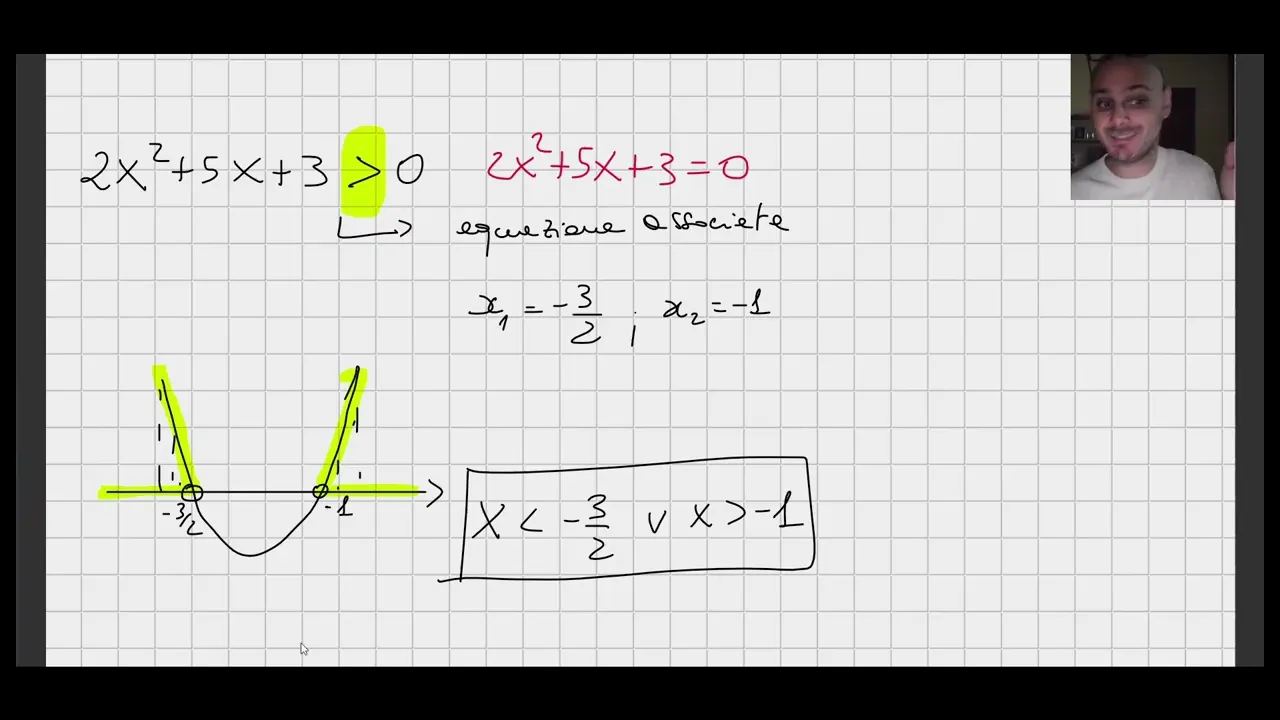 2x²+5x+3 > 0 2x²+5x+3=0
equazione associata
x₁ = -3/2 ; x₂ = -1
-3/2 -1
X < -3/2 ∨ X > -1